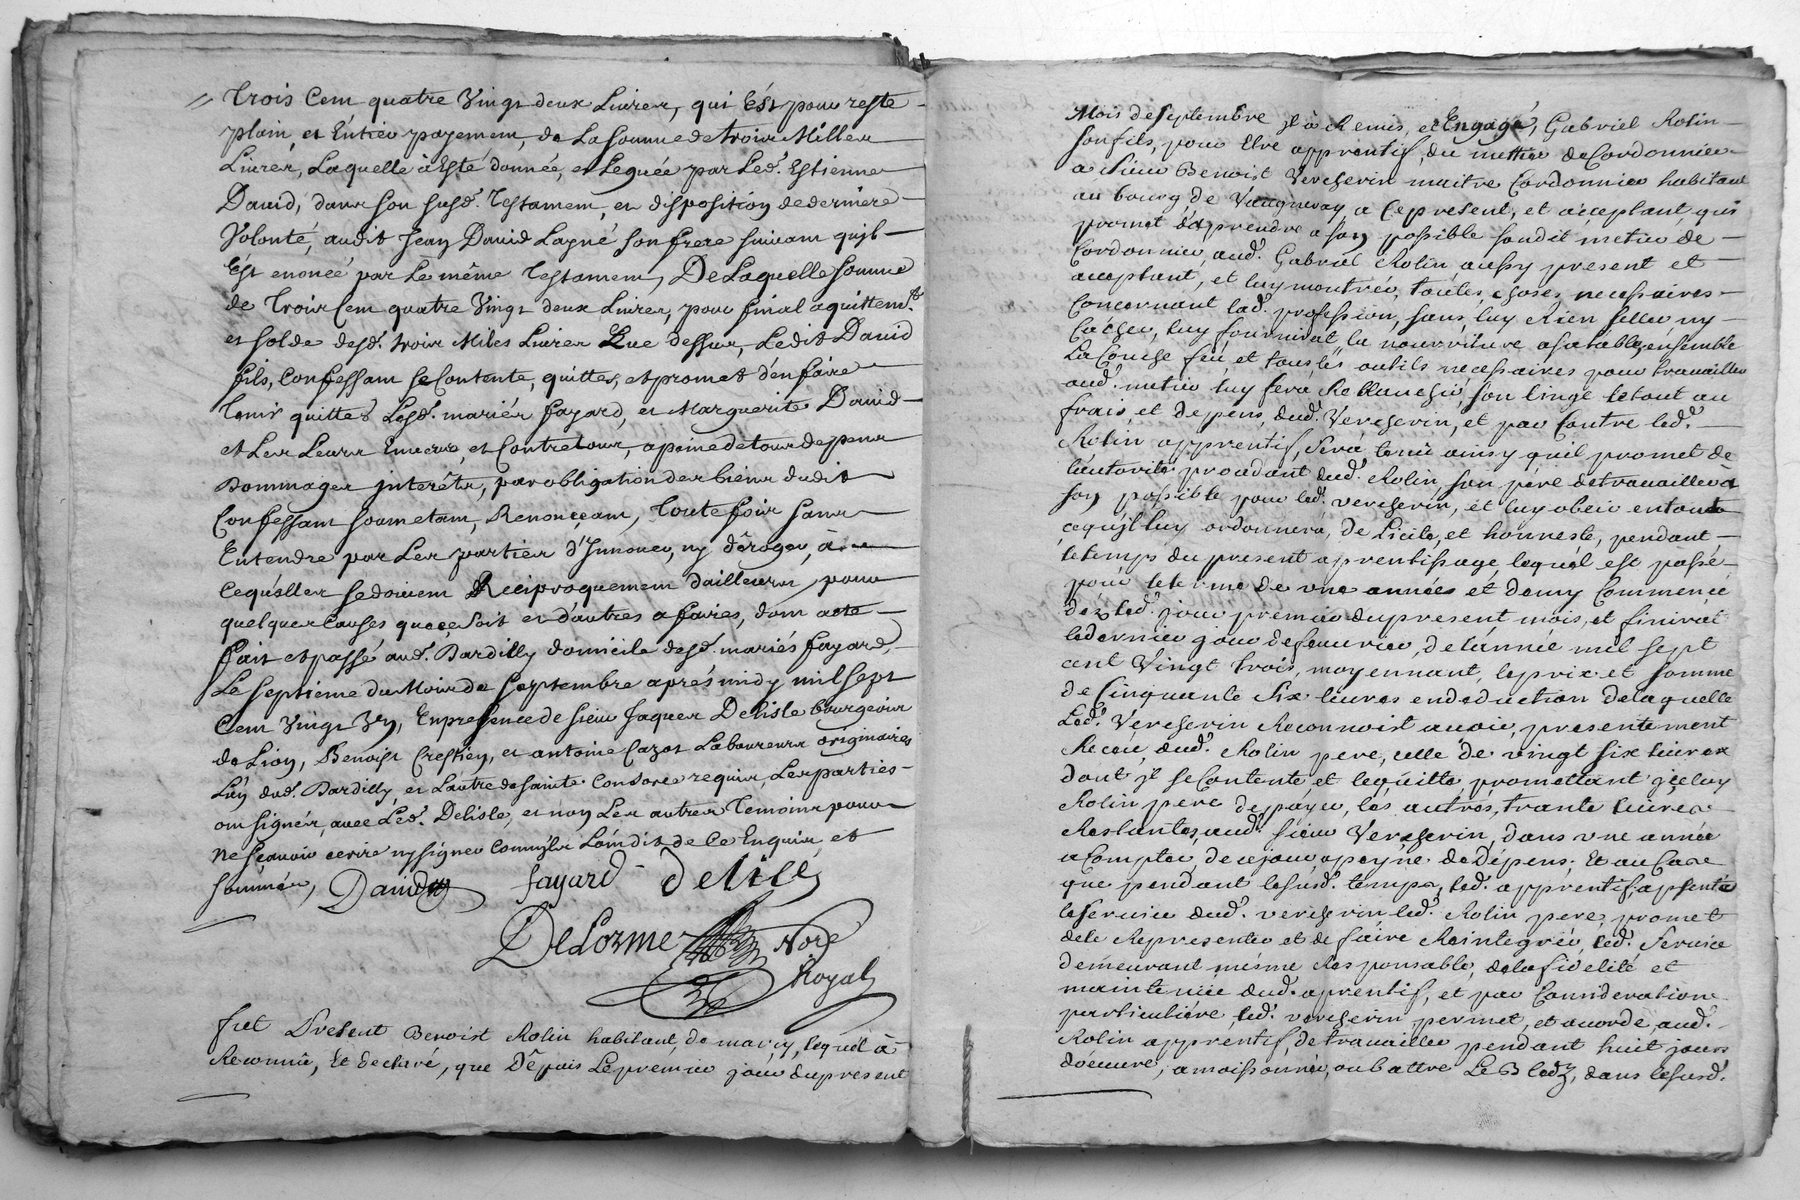 Trois Cent quatre Vingt deux Livres, qui Est pour reste
plain, et Entier payement, de La somme de trois Milles
Livres, Laquelle a Esté donnée, et Leguée par Led. Estienne
David, dans son susd. Testament, et disposition de derniere
Volonté, audit Jean David Lagné son frere suivant quil
Est enoncé par Le même Testament, De Laquelle somme
de Trois Cent quatre Vingt deux Livres, pour final aquittemt.
et solde desd. trois Miles Livres Que dessus, Ledit David
fils, Confessant se Contente, quitte, et promet d'en faire
tenir quittes Lesd. mariés fayard, et Marguerite David
et Les Leurs Envers, et Contre tous, a peine de tous depens
Dommages interêts, par obligation des biens dudit
Confessant soumetant, Renonçant, Toute fois sans
Entendre par Les parties d'Innover, ny dêroger, à
Ce qu'elles se doivent Reciproquement d'ailleurs pour
quelques Causes que ce soit et d'autres afaires, dont acte
fait et passé aud. Dardilly domicile desd. mariés fayard,
Le septieme du Mois de septembre aprés midy mil sept
Cent Vingt Un, En presence de sieur Jaques Delisle bourgeois
de Lion, Benoist Crestien, et antoine Cazot Laboureurs originaires
L'un dud. Dardilly, et Lautre de sainte Consorce requis, Les parties
ont signés, avec Led. Delisle, et non Les autres Temoins pour
ne scavoir ecrire ny signer comm'ils L'ont dit de Ce Enquis, et
sommés, David fayard delile
DeLorme Nore
Royal
fut Present Benoist Rolin habitant, de marcy, lequel à
Reconnû, Et declaré, que Dêpuis Le premier jour du present
Mois de septembre il a Remis, et Engagé, Gabriel Rolin
son fils, pour Etre apprentif, du mettier de Cordonnier
a sieur Benoist Vercherin maitre Cordonnier habitant
au bourg, de Vaugneray, a Ce present, et acceptant, qui
promet d'aprendre a son possible soudit metier de
Cordonnier, aud. Gabriel Rolin, aussy present et
acceptant, et luy montrer, toutes, choses necessaires
Concernant lad. profession, sans luy Rien seller ny
Cacher, luy fournirat la nourriture a sa table, ensemble
La Couche feu, et tous les outils necessaires pour travailler
aud. metier luy fera Reblanchir son linge le tout au
frais et depens, dud. Vercherin, et par Contre led.
Rolin apprentif, sera tenu ainsy quil promet de
l'autorité procedant dud. Rolin son père de travailler a
son possible pour led. vercherin, et luy obeir en tout
ce qu'il luy ordonnera, de Licite, et honneste, pendant
le temps du present aprentissage lequel est passé
pour le terme de une années et demy Commencé
dez led. jour premier du present mois, et finirat
le dernier jour de fevrier, de l'année mil sept
cent Vingt trois, moyennant, le prix et somme
de Cinquante Six livres en deduction de laquelle
Led. Vercherin Reconnoist avoir, presentement
Receu, dud. Rolin pere, celle de vingt six livres
dont il se Contente, et le quitte, promettant iceluy
Rolin pere de payer, les autres, trante livres
Restantes, aud. sieur Vercherin, dans une année
a Compter, de ce jour a peyne de dépens; Et au Cas
que pendant le susd. temps, led. apprentif, apsenta
le service dud. vercherin led. Rolin pere, promet
de le Representer et de faire Reintegrer, led. Service
demeurant même Responsable, de la fidelité et
mainteniée dud. aprentif, et par Consideration
particulière, led. vercherin, permet, et acorde, aud.
Rolin apprentif, de travailler pendant huit jours
d'oeuvre, a moissonner, ou battre Le Bled, dans le susd.